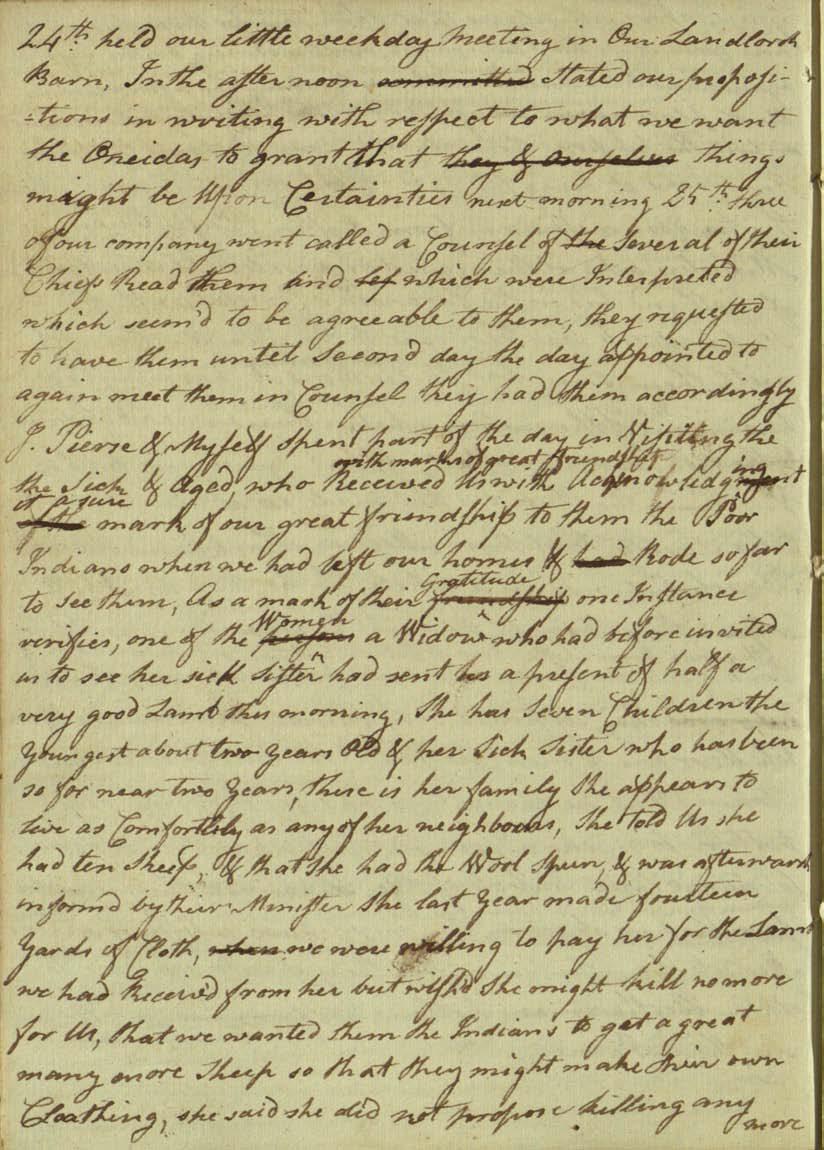 24th held our little weekday Meeting in Our Landlords
Barn, In the after noon committed Stated our proposi-
-tions in writing with respect to what we want
the Oneidas to grant that they & ourselves things
might be Upon Certainties next morning 25th three
of our company went called a Counsel of the Several of their
Chiefs Read them and lef which were Interpreted
which seem'd to be agreeable to them, they requested
to have them until Second day the day appointed to
again meet them in Counsel they had them accordingly
J. Pierse & Myself spent part of the day in Visiting the
with marks of great friendship
the Sick & Aged, who Received Us with Acknowledging
or a sure
of the mark of our great friendship to them the Poor
Indians when we had left our homes & had Rode so far
Gratitude
to see them, As a mark of their friendship one Instance
Women
verifies, one of the persons a Widow who had before invited
us to see her sick Sister had sent us a present of half a
very good Lamb this morning, She has Seven Children the
Youngest about two years Old & her Sick Sister who has been
so for near two Years, these is her family She appears to
live as Comfortbly as any of her neighbours, She told Us she
had ten Sheep, & that she had the Wool Spun, & was afterwards
informd by their Minister She last Year made fourteen
Yards of Cloth, when we were willing to pay her for the Lamb
we had Received from her but wish'd She might kill no more
for Us, that we wanted them the Indians to get a great
many more Sheep so that they might make their own
Cloathing, she said she did not propose killing any
more